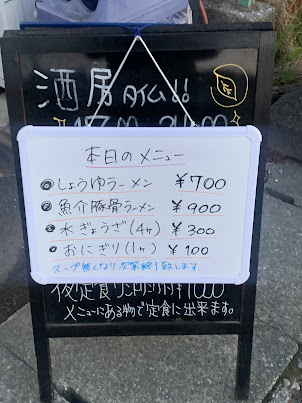 酒房タイム!!
本日のメニュー
しょうゆラーメン ¥700
魚介豚骨ラーメン ¥900
水ぎょうざ(4ヶ) ¥300
おにぎり(1ヶ) ¥100
スープ無くなり次第終了致します。
夜定食ワンドリンク付¥1000
メニューにある物で定食に出来ます。